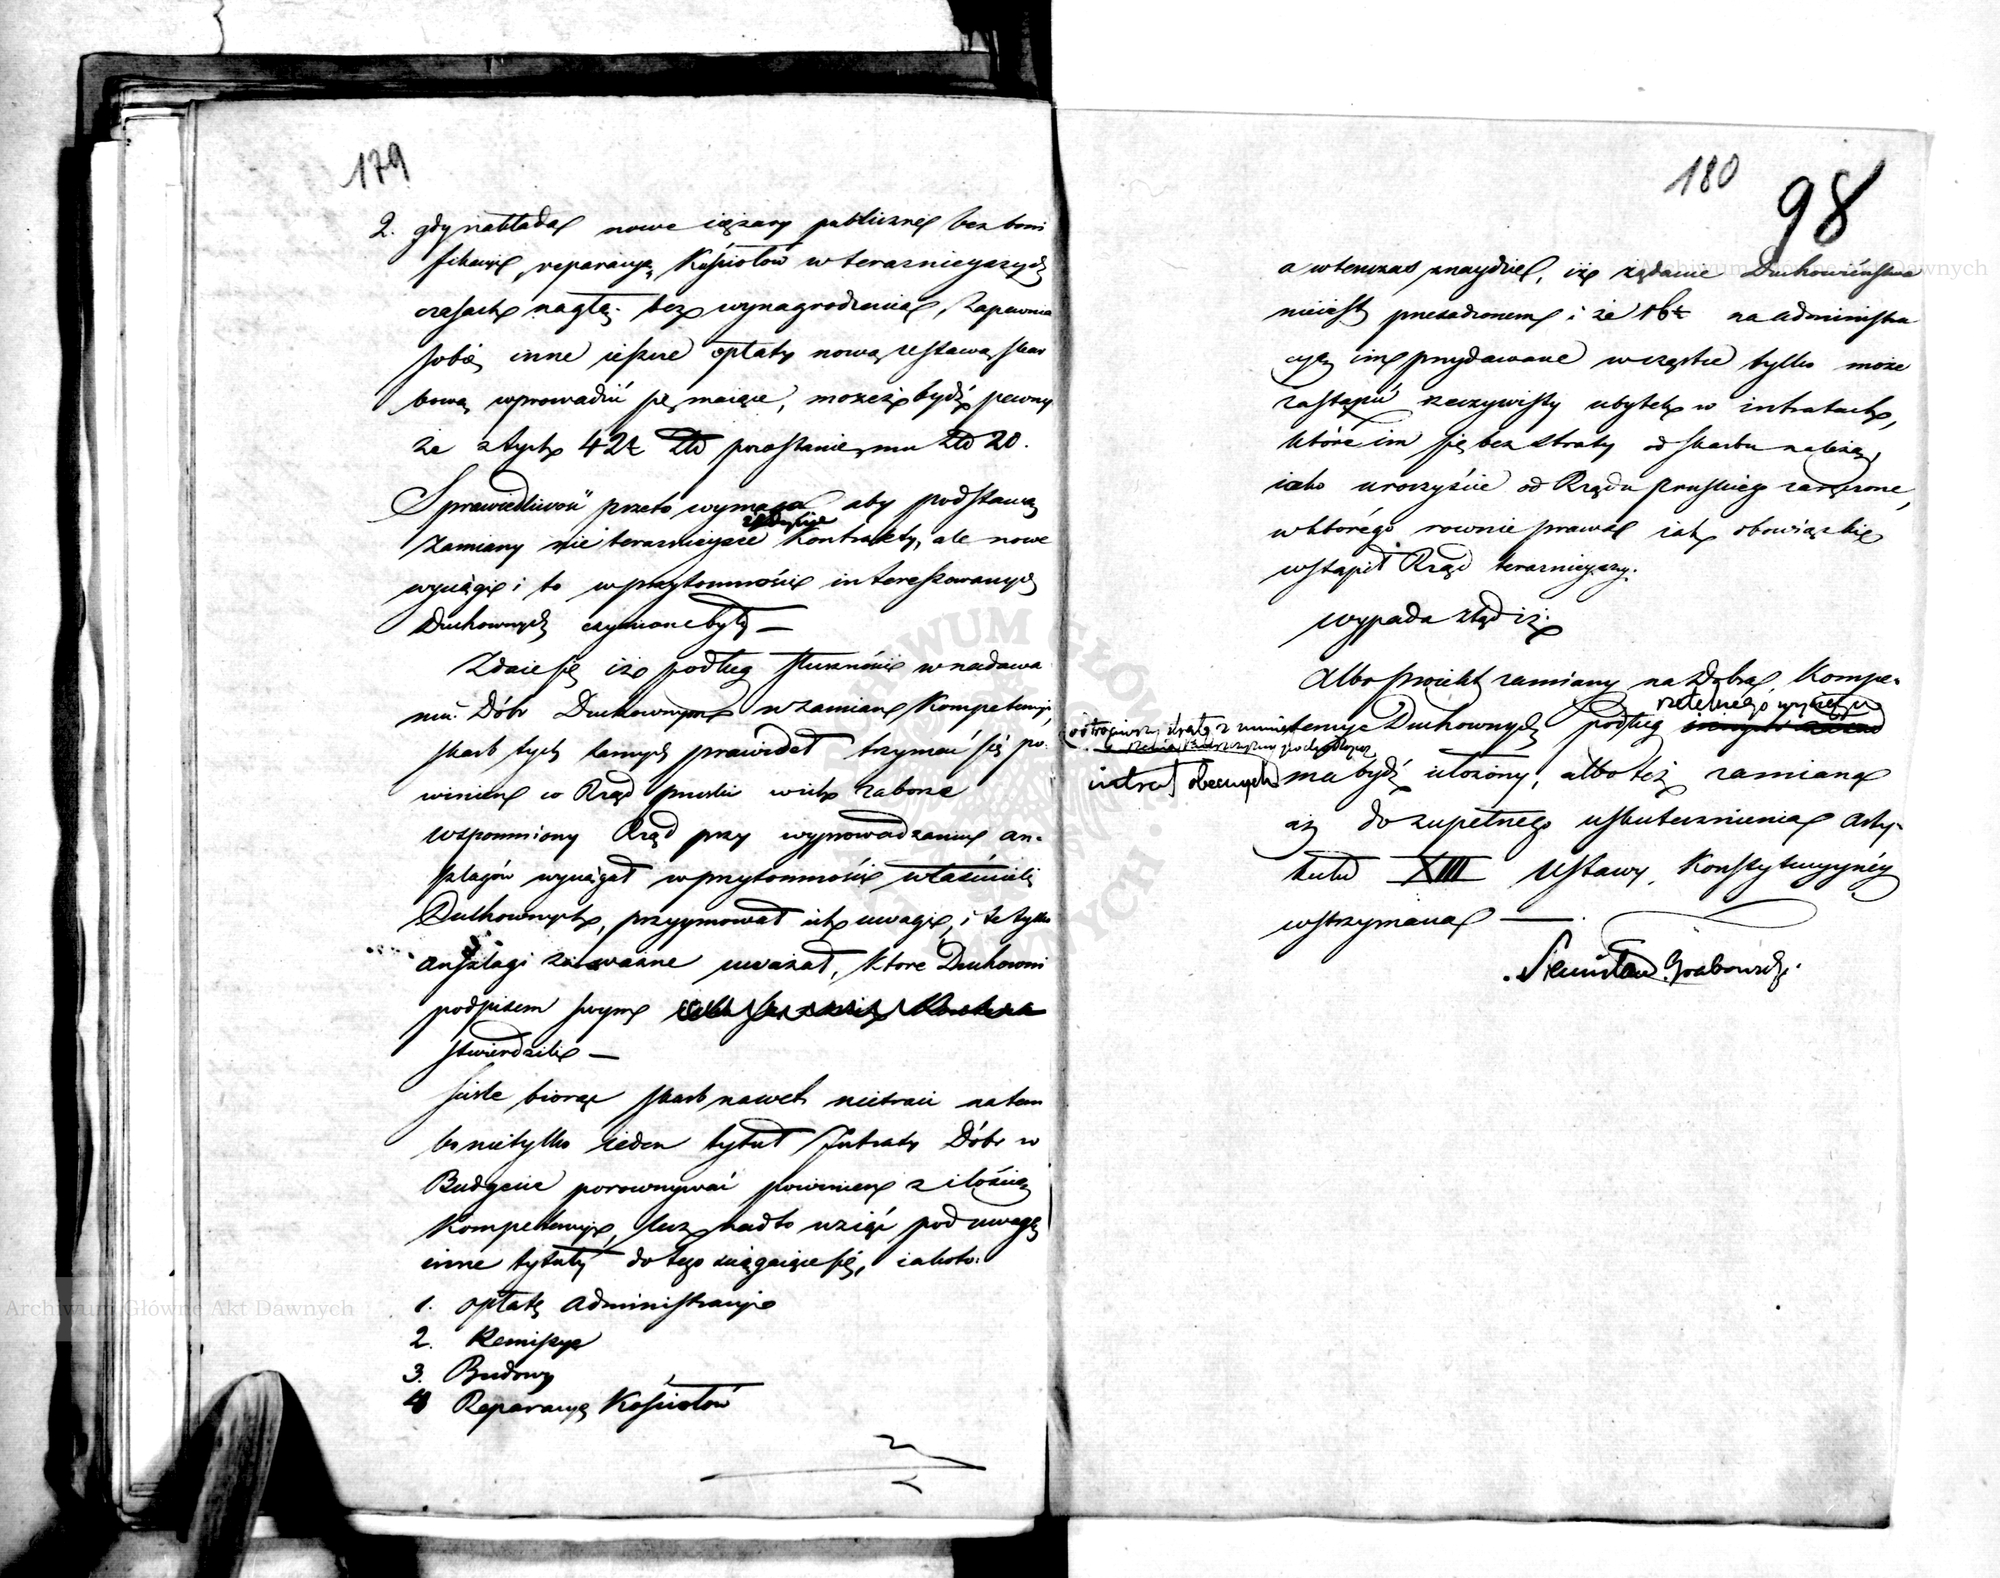 179
2. gdy nakłada nowe ciężary publiczne bez boni
fikacyi, reparacyą Kościołów w teraznieyszych
czasach nagłą bez wynagrodzenia, Zapewnia
sobie inne ieszcze opłaty nową ustawą skar
bową wprowadzić się maiące, możeż bydź pewny
że z tych 42 Złó pozostanie mu Złó 20.
Sprawiedliwość przeto wymaga aby podstawą
Zamiany nie teraznieysze Kontrakty, ale nowe
wyciągi i to w przytomności interessowanych
Duchownych czynione były —
Zdaie się iż podług słuszności w nadawa
niu Dóbr Duchownym w zamian Kompetencyi,
skarb tych samych prawideł trzymać się po
winien co Rząd pruski w ich zaborze
wspomniony Rząd przy wyprowadzaniu an-
szlagów wyciągał w przytomności właścicieli
Duchownych, przyymował ich uwagi, i te tylko
anszlagi za ważne uważał, które Duchowni
podpisem swym
stwierdzili —
Ściśle biorąc skarb nawet nietraci na tem
bo nietylko ieden tytuł Intraty Dóbr w
Budgecie porownywać powinien z ilością
Kompetencyi, lecz nadto wziąć pod uwagę
inne tytuły do tego ściągaiące się, iakoto:
1. opłatę administracyi
2. Remissye
3. Budowy
4 Reparacyą Kościołów
180
98
a wtenczas znaydzie, iż żądanie Duchowieństwa
nieiest przesadzonem i że na administra
cyą im przydawane w części tylko może
zastąpić rzeczywisty ubytek w intratach,
które im się bez straty od skarbu należą,
iako uroczyście od Rządu pruskiego zaręczone,
w którego rownie prawa iak obowiązki
wstąpił Rząd teraznieyszy.
wypada ztąd iż:
Albo proiekt zamiany na Dobra Kompe-
rzetelnego wyciągu
tencyi Duchownych podług
intrat obecnych ma bydź ułożony, albo też zamiana
aż do zupełnego uskutecznienia Arty-
kułu XIII Ustawy Konstytucyyney
wstrzymana —
Stanisław Grabowski.
Archiwum Główne Akt Dawnych